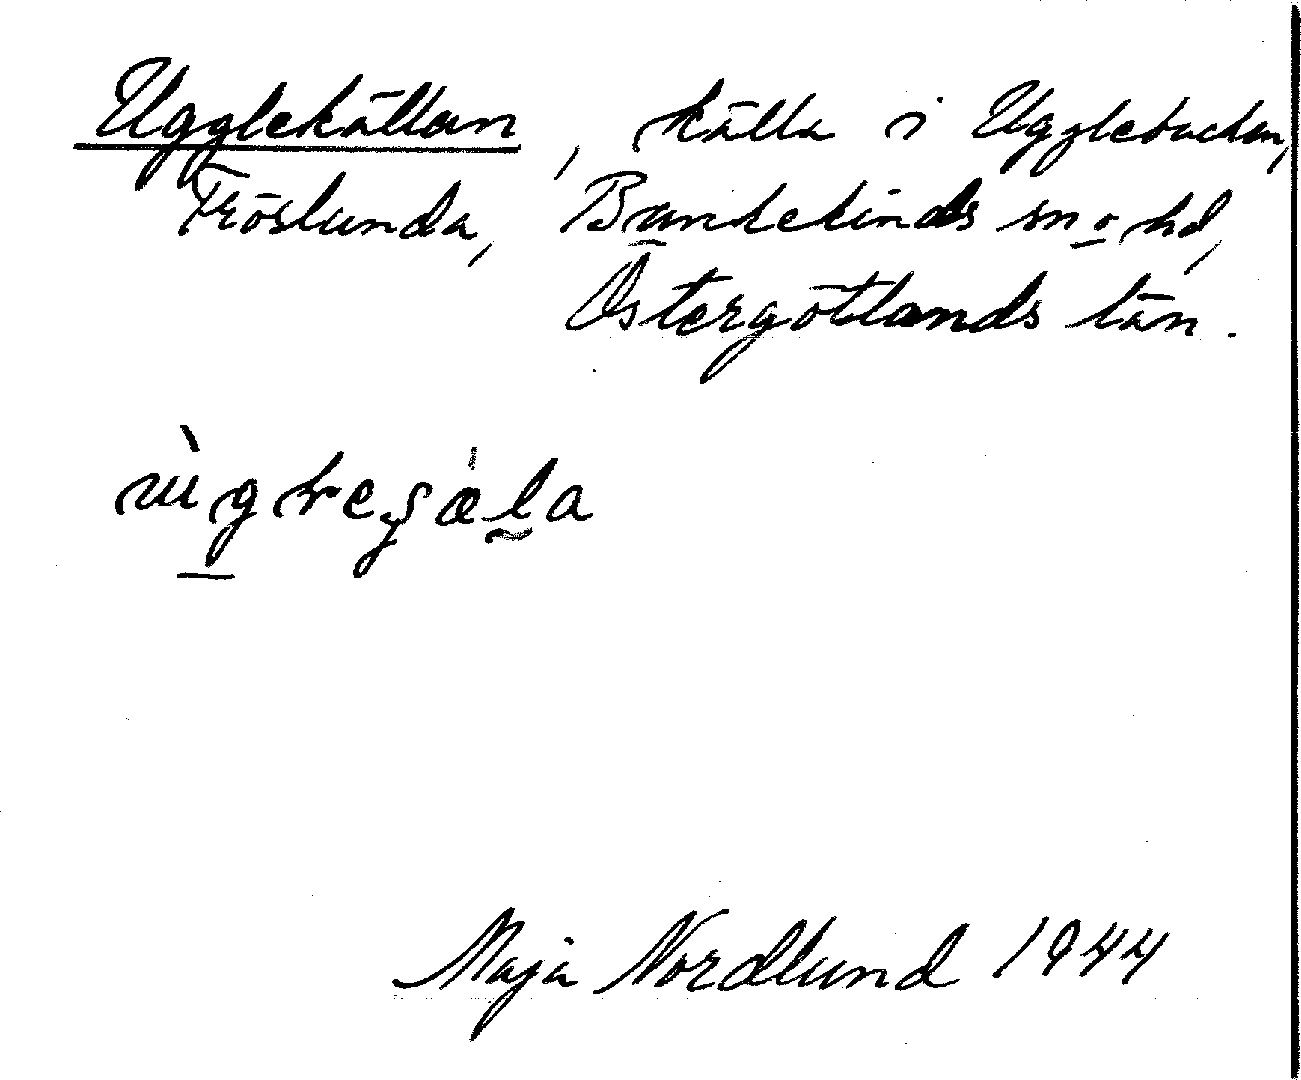 Ugglekällan, källa i Ugglebacken,
Fröslunda, Bankekinds sn o. hd,
Östergötlands län.
Maja Nordlund 1944